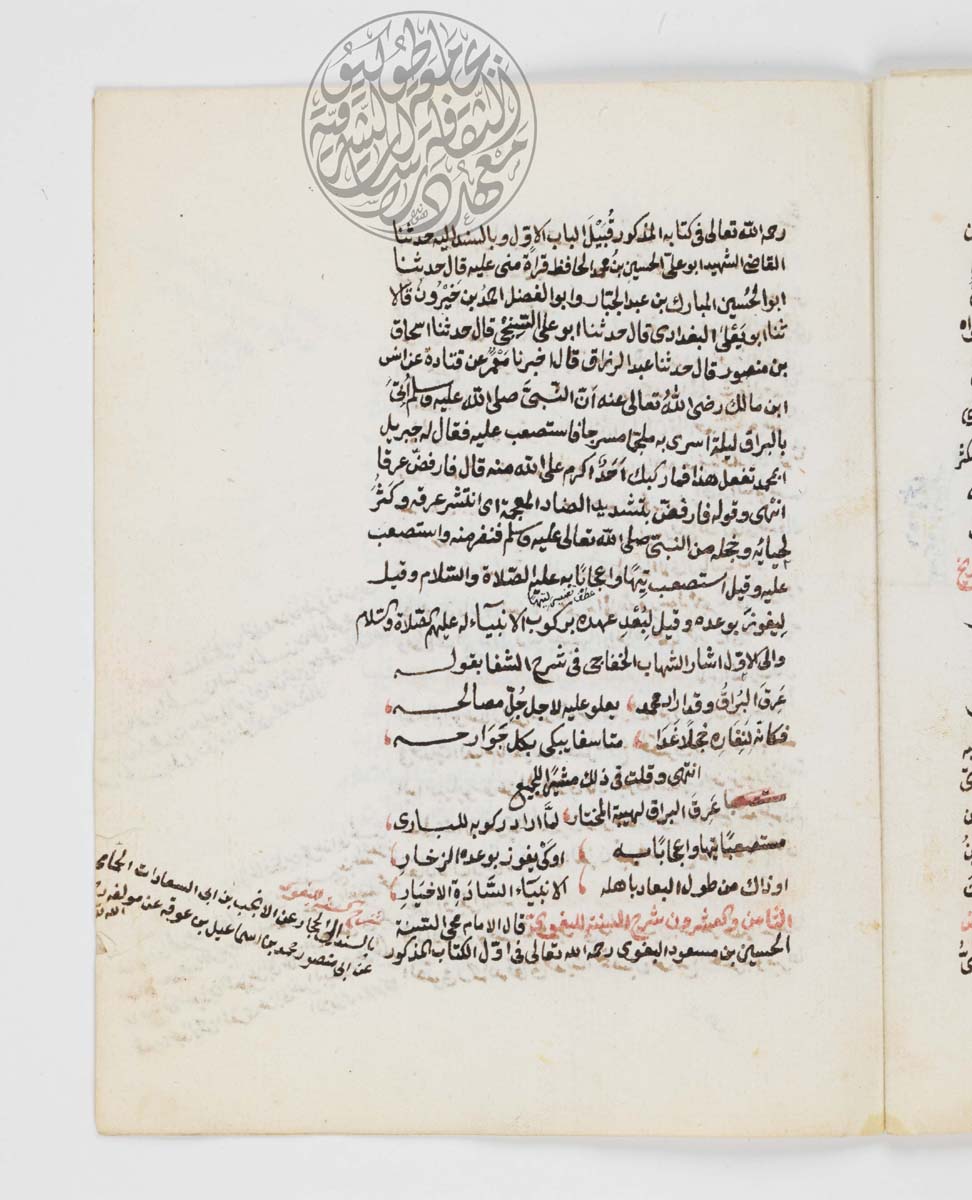 رحمه الله تعالى فى كتابه المذكور قُبَيْلَ الباب الاوّل وبالسند اليه حدثنا
القاضى الشهيد ابو على الحسين بن محمد الحافظ قراءة منى عليه قال حدثنا
ابو الحُسين المبارك بن عبد الجبار وابو الفضل احمد بن خَيْرُون قالا
ثنا ابو يَعْلى البغدادى قال حدثنا ابو على السِّنْجى قال حدثنا اسحاق
بن منصور قال حدثنا عبد الرزاق قال اخبرنا مَعْمَرٌ عن قتادة عن انس
ابن مالك رضى اللهُ تعالى عنه اَنّ النَّبىَّ صلى الله عليه وسلم اُتِىَ
بالبراق ليلة اسرى به ملجما مسرجا فاستصعب عليه فقال له جبريل
ابمحمد تفعل هذا فما ركبك اَحَدٌ اكرم على الله منه قال فارفضّ عرقا
انتهى وقوله فارفضّ بتشديد الضاد المعجمة اى انتشر عرقه وكَثُرَ
لحيائه وخجله من النبىّ صلى الله تعالى عليه وسلم فنفر منه واستصعب
عليه وقيل استصعب تِيهًا واعجابًا به عليه الصّلاة والسّلام وقيل
عطف تفسير لتيها
ليفوز بوعده وقيل لِبُعْدِ عهده بركوب الانبيآء له عليهم الصلاة والسلام
والى الاوّل اشار الشهاب الخفاجى فى شرح الشفا بقوله
عَرِقَ البُراقُ وقد اراد محمد يعلو عليه لاجل جُلّ مصالحه
فكانّه لِنِفَارِه خَجِلًا غَدَا متاسفا يبكى بكل جَوَارحه
انتهى وقلت فى ذلك مشيرًا للجميع
عَرِقَ البراق لهيبة المختار لمّا اراد ركوبه للبارى
مستصعبًا تيها واعجابًا به او كَىْ يفوز بوعده الزخارِ
او ذاك من طول البعاد باهله الانبيآء السَّادَةِ الاخيَارِ
الثامن والعشرون شرح السنة للبغوى قال الامام محى السّنة
الحسين بن مسعود البغوى رحمه الله تعالى فى اوّل الكتاب المذكور
بالسند الى الحجار عن الانجب بن ابى السعادات الحمامى
عن ابى منصور محمد بن اسماعيل بن عوفه عن مولفه